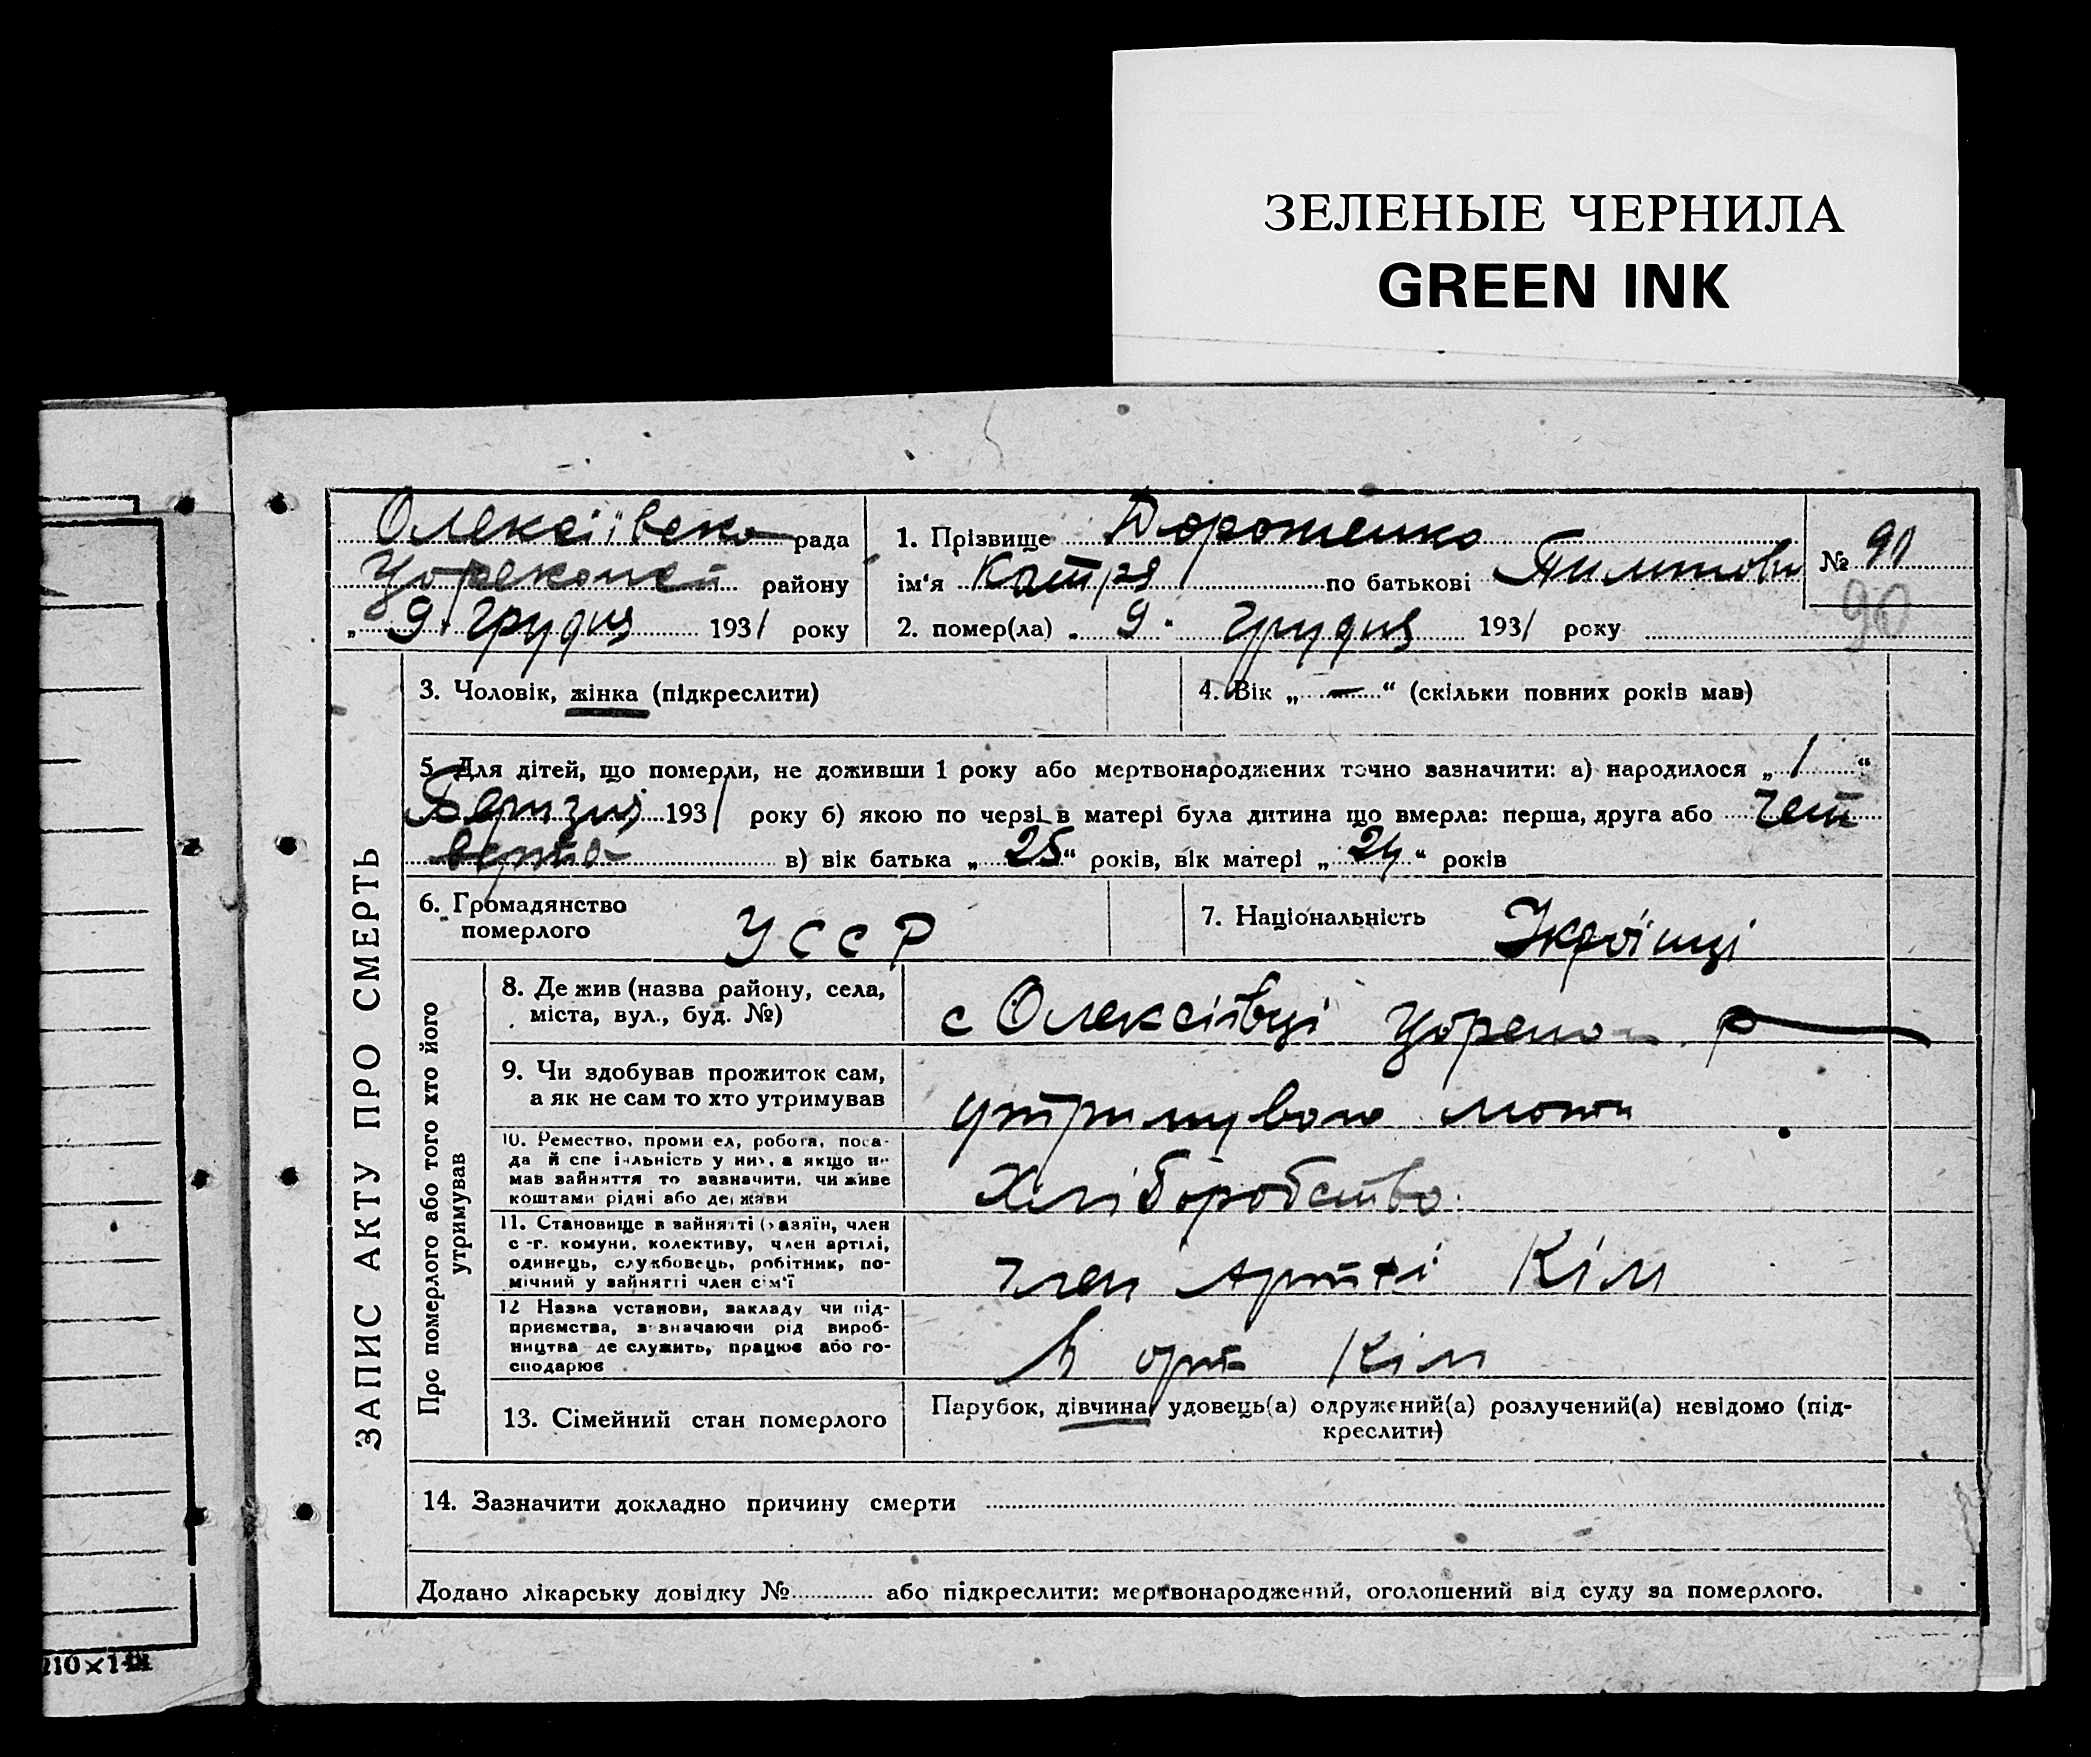 ЗЕЛЕНЫЕ ЧЕРНИЛА
GREEN INK
Олексіївсько рада
району
„ 9 " грудня 1931 року
1. Прізвище Дорошенко
ім'я Катря по батькові
2. помер(ла) „ 9 " грудня 1931 року
№ 91
90
ЗАПИС АКТУ ПРО СМЕРТЬ
3. Чоловік, жінка (підкреслити)
4. Вік „ — “ (скільки повних років мав)
5. Для дітей, що померли, не доживши 1 року або мертвонароджених точно зазначити: а) народилося „ 1 “
1931 року б) якою по черзі в матері була дитина що вмерла: перша, друга або чет
верта в) вік батька „ 25 “ років, вік матері „ 24 “ років
6. Громадянство
померлого
УССР
7. Національність
Про померлого або того хто його
утримував
8. Де жив (назва району, села,
міста, вул., буд. №)
с Олексіївці р
9. Чи здобував прожиток сам,
а як не сам то хто утримував
10. Ремество, промисел, робота, поса-
да й спеціяльність у них, а якщо не
мав зайняття то зазначити, чи живе
коштами рідні або держави
Хліборобство
11. Становище в зайнятті (хазяїн, член
с.-г. комуни, колективу, член артілі,
одинець, службовець, робітник, по-
мічний у зайнятті член сім'ї
член Артілі Кім
12 Назва установи, закладу чи під-
приємства, зазначаючи рід вироб-
ництва де служить, працює або го-
сподарює
В арт Кім
13. Сімейний стан померлого
Парубок, дівчина, удовець(а) одружений(а) розлучений(а) невідомо (під-
креслити)
14. Зазначити докладно причину смерти
Додано лікарську довідку № або підкреслити: мертвонароджений, оголошений від суду за померлого.
210×148